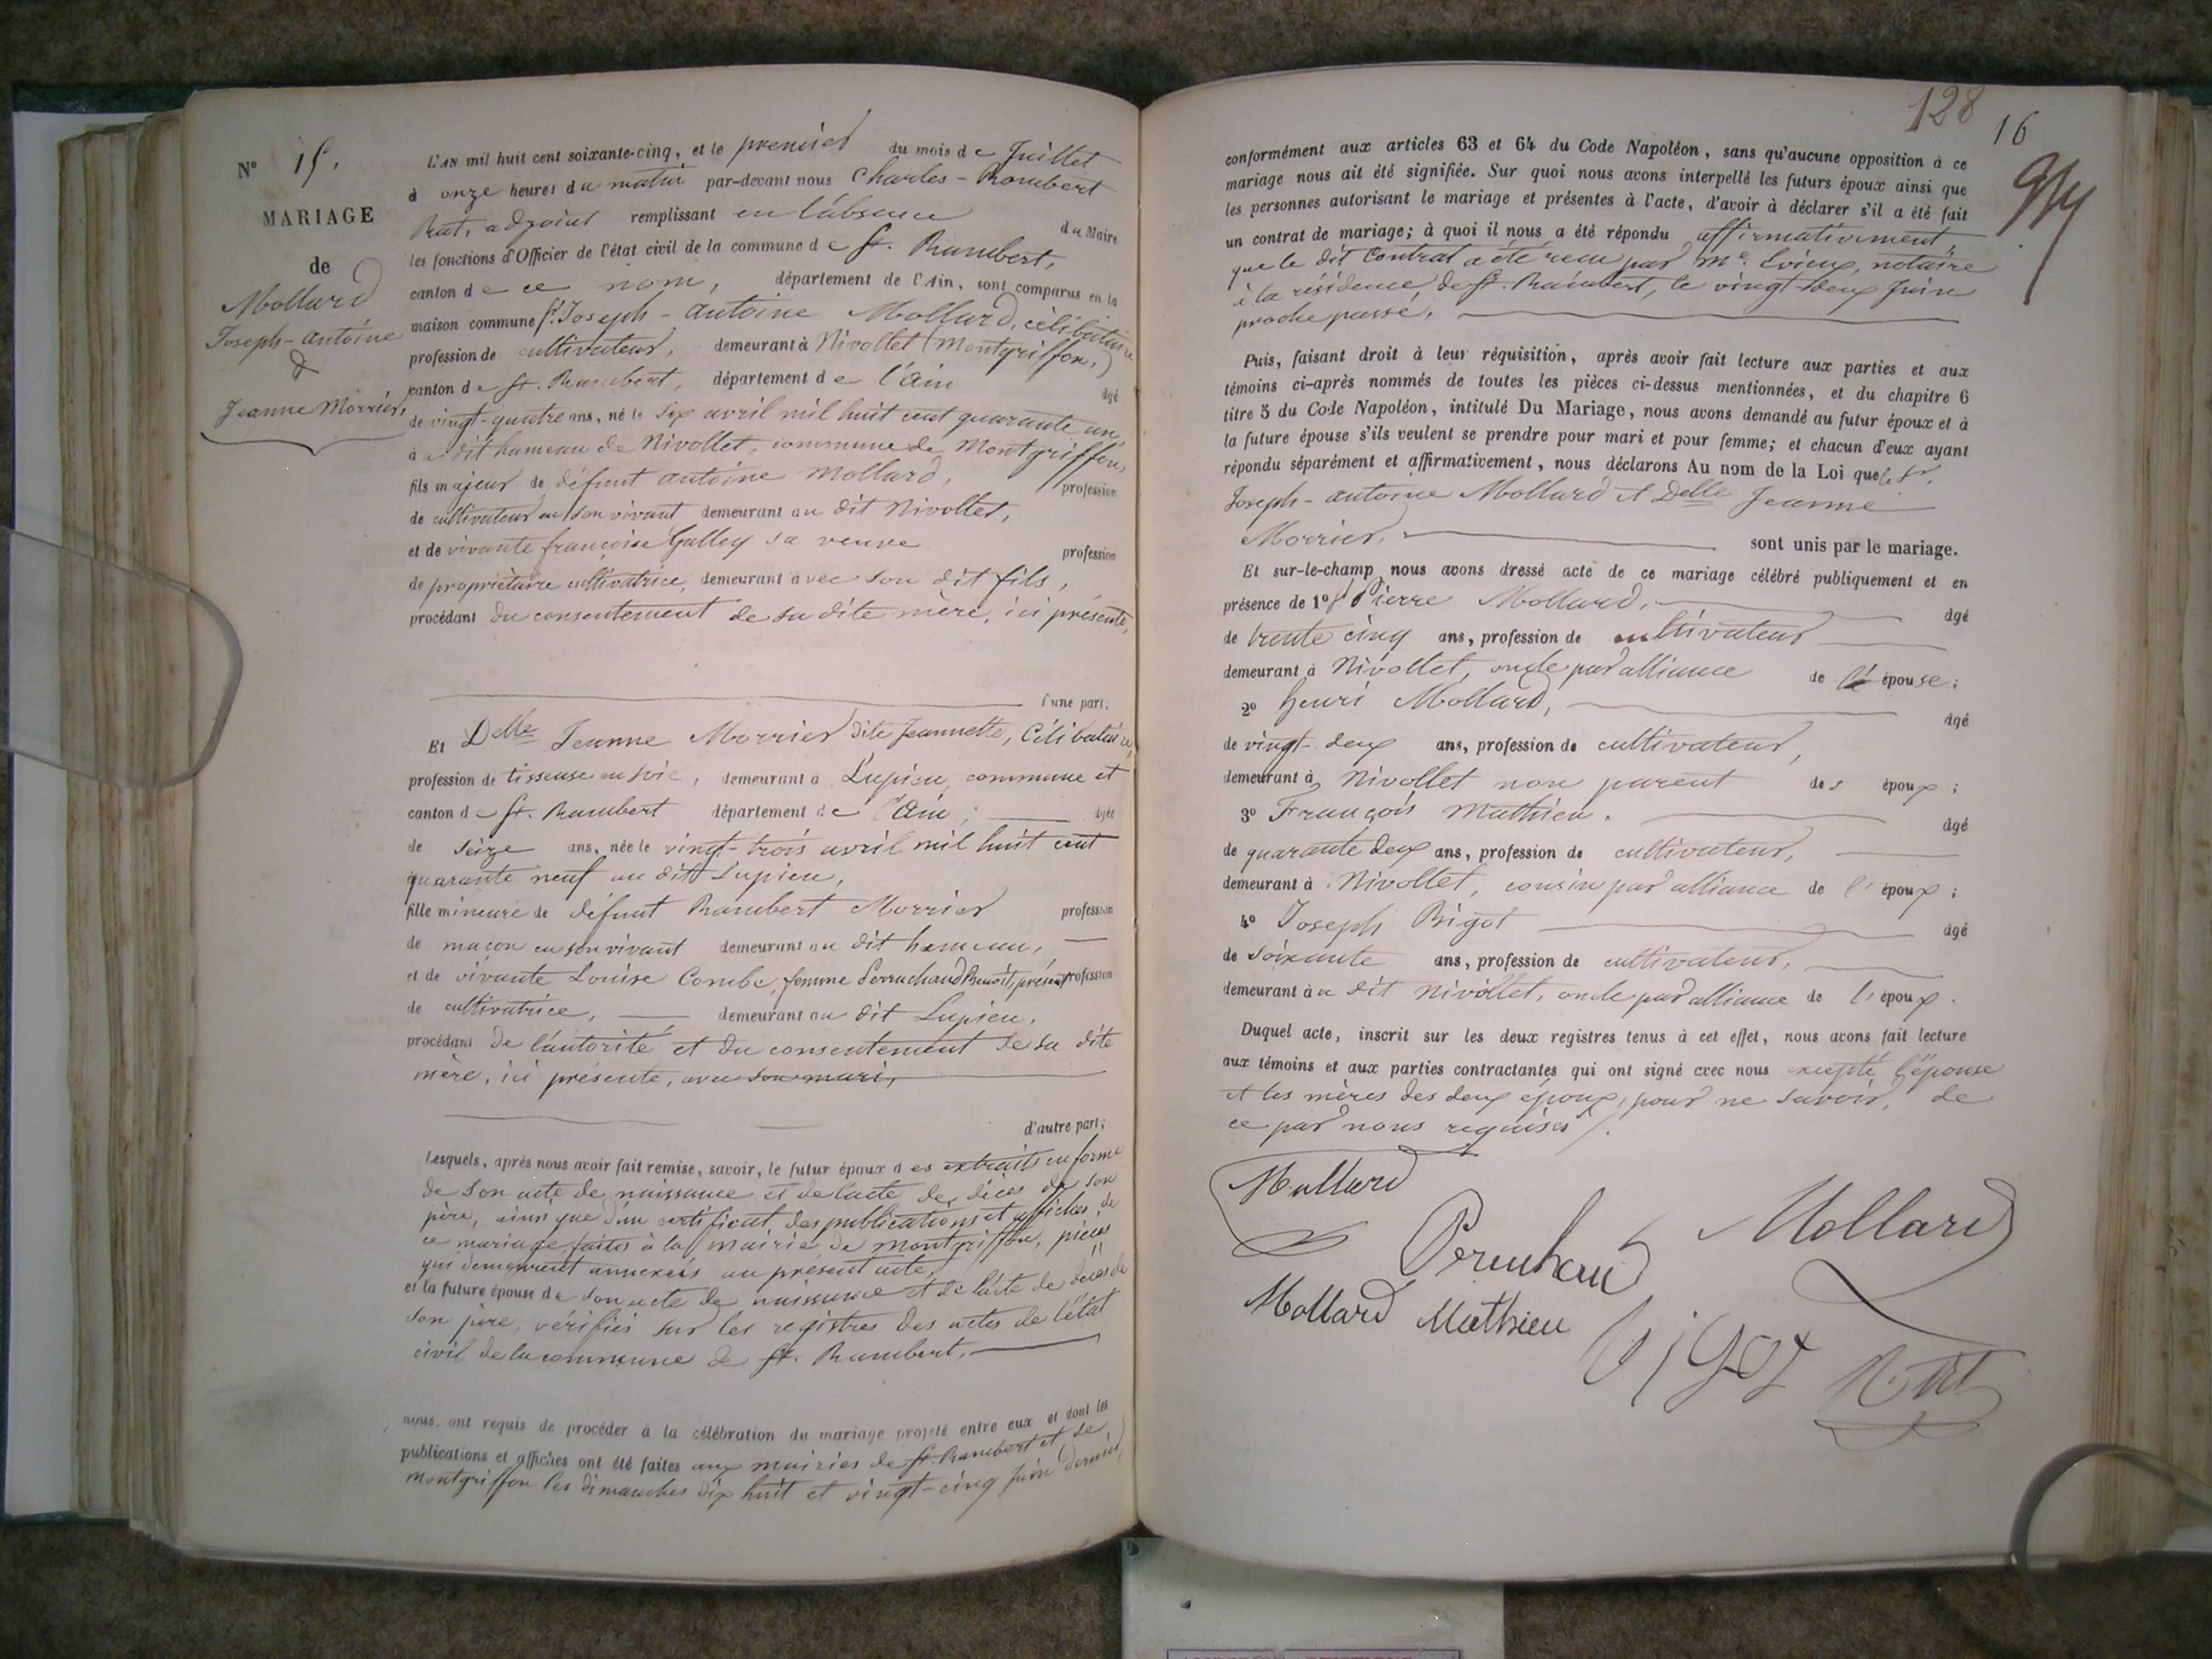 N° 15.
MARIAGE
de
Mollard
Joseph-Antoine
&
Jeanne Morrier,
L'AN mil huit cent soixante-cinq, et le premier du mois de Juillet
à onze heures du matin par-devant nous Charles-Rambert
adjoint remplissant en l'absence du Maire
les fonctions d'Officier de l'état civil de la commune de St. Rambert,
canton de ce nom, département de l'Ain, sont comparus en la
maison commune Sr. Joseph-Antoine Mollard, célibataire
profession de cultivateur, demeurant à Nivollet (Montgriffon,)
canton de St. Rambert, département de l'Ain âgé
de vingt-quatre ans, né le six avril mil huit cent quarante un
au dit hameau de Nivollet, commune de Montgriffon,
fils majeur de défunt Antoine Mollard, profession
de cultivateur en son vivant demeurant au dit Nivollet,
et de vivante françoise Galley sa veuve profession
de propriétaire cultivatrice, demeurant avec son dit fils,
procédant du consentement de sa dite mère, ici présente,
d'une part;
Et Delle Jeanne Morrier dite Jeannette, Célibataire,
profession de tisseuse en soie, demeurant à Lupieu, commune et
canton de St. Rambert département de l'Ain, âgée
de seize ans, née le vingt-trois avril mil huit cent
quarante neuf au dit Lupieu,
fille mineure de défunt Rambert Morrier profession
de maçon en son vivant demeurant au dit hameau,
et de vivante Louise Combe, femme Perruchaud Benoît, présent profession
de cultivatrice, demeurant au dit Lupieu,
procédant de l'autorité et du consentement de sa dite
mère, ici présente, avec son mari,
d'autre part;
Lesquels, après nous avoir fait remise, savoir, le futur époux des extraits en forme
de son acte de naissance et de l'acte de décès de son
père, ainsi que d'un certificat des publications et affiches de
ce mariage, faites à la mairie de Montgriffon, pièces
qui demeurent annexées au présent acte,
et la future épouse de son acte de naissance et de l'acte de décès de
son père, vérifiés sur les registres des actes de l'état
civil de la commune de St. Rambert,
nous, ont requis de procéder à la célébration du mariage projeté entre eux et dont les
publications et affiches ont été faites aux mairies de St. Rambert et de
Montgriffon les dimanches dix huit et vingt-cinq juin dernier,
128
16
conformément aux articles 63 et 64 du Code Napoléon, sans qu'aucune opposition à ce
mariage nous ait été signifiée. Sur quoi nous avons interpellé les futurs époux ainsi que
les personnes autorisant le mariage et présentes à l'acte, d'avoir à déclarer s'il a été fait
un contrat de mariage; à quoi il nous a été répondu affirmativement,
que le dit Contrat a été reçu par Me. notaire
à la résidence de St. Rambert, le vingt-deux Juin
proche passé,
Puis, faisant droit à leur réquisition, après avoir fait lecture aux parties et aux
témoins ci-après nommés de toutes les pièces ci-dessus mentionnées, et du chapitre 6
titre 5 du Code Napoléon, intitulé Du Mariage, nous avons demandé au futur époux et à
la future épouse s'ils veulent se prendre pour mari et pour femme; et chacun d'eux ayant
répondu séparément et affirmativement, nous déclarons Au nom de la Loi que le Sr.
Joseph-Antoine Mollard et Delle Jeanne
Morrier, sont unis par le mariage.
Et sur-le-champ nous avons dressé acte de ce mariage célébré publiquement et en
présence de 1° Pierre Mollard, âgé
de trente cinq ans, profession de cultivateur
demeurant à Nivollet, oncle par alliance de l'épouse;
2° henri Mollard, âgé
de vingt-deux ans, profession de cultivateur,
demeurant à Nivollet non parent des époux;
3° François Mathieu. âgé
de quarante deux ans, profession de cultivateur,
demeurant à Nivollet, cousin par alliance de l'époux;
4° Joseph Bigot âgé
de soixante ans, profession de cultivateur,
demeurant au dit Nivollet, oncle par alliance de l'époux.
Duquel acte, inscrit sur les deux registres tenus à cet effet, nous avons fait lecture
aux témoins et aux parties contractantes qui ont signé avec nous excepté l'épouse
et les mères des deux époux, pour ne savoir, de
ce par nous requises.
Mollard
Mollard
Mollard Mathieu